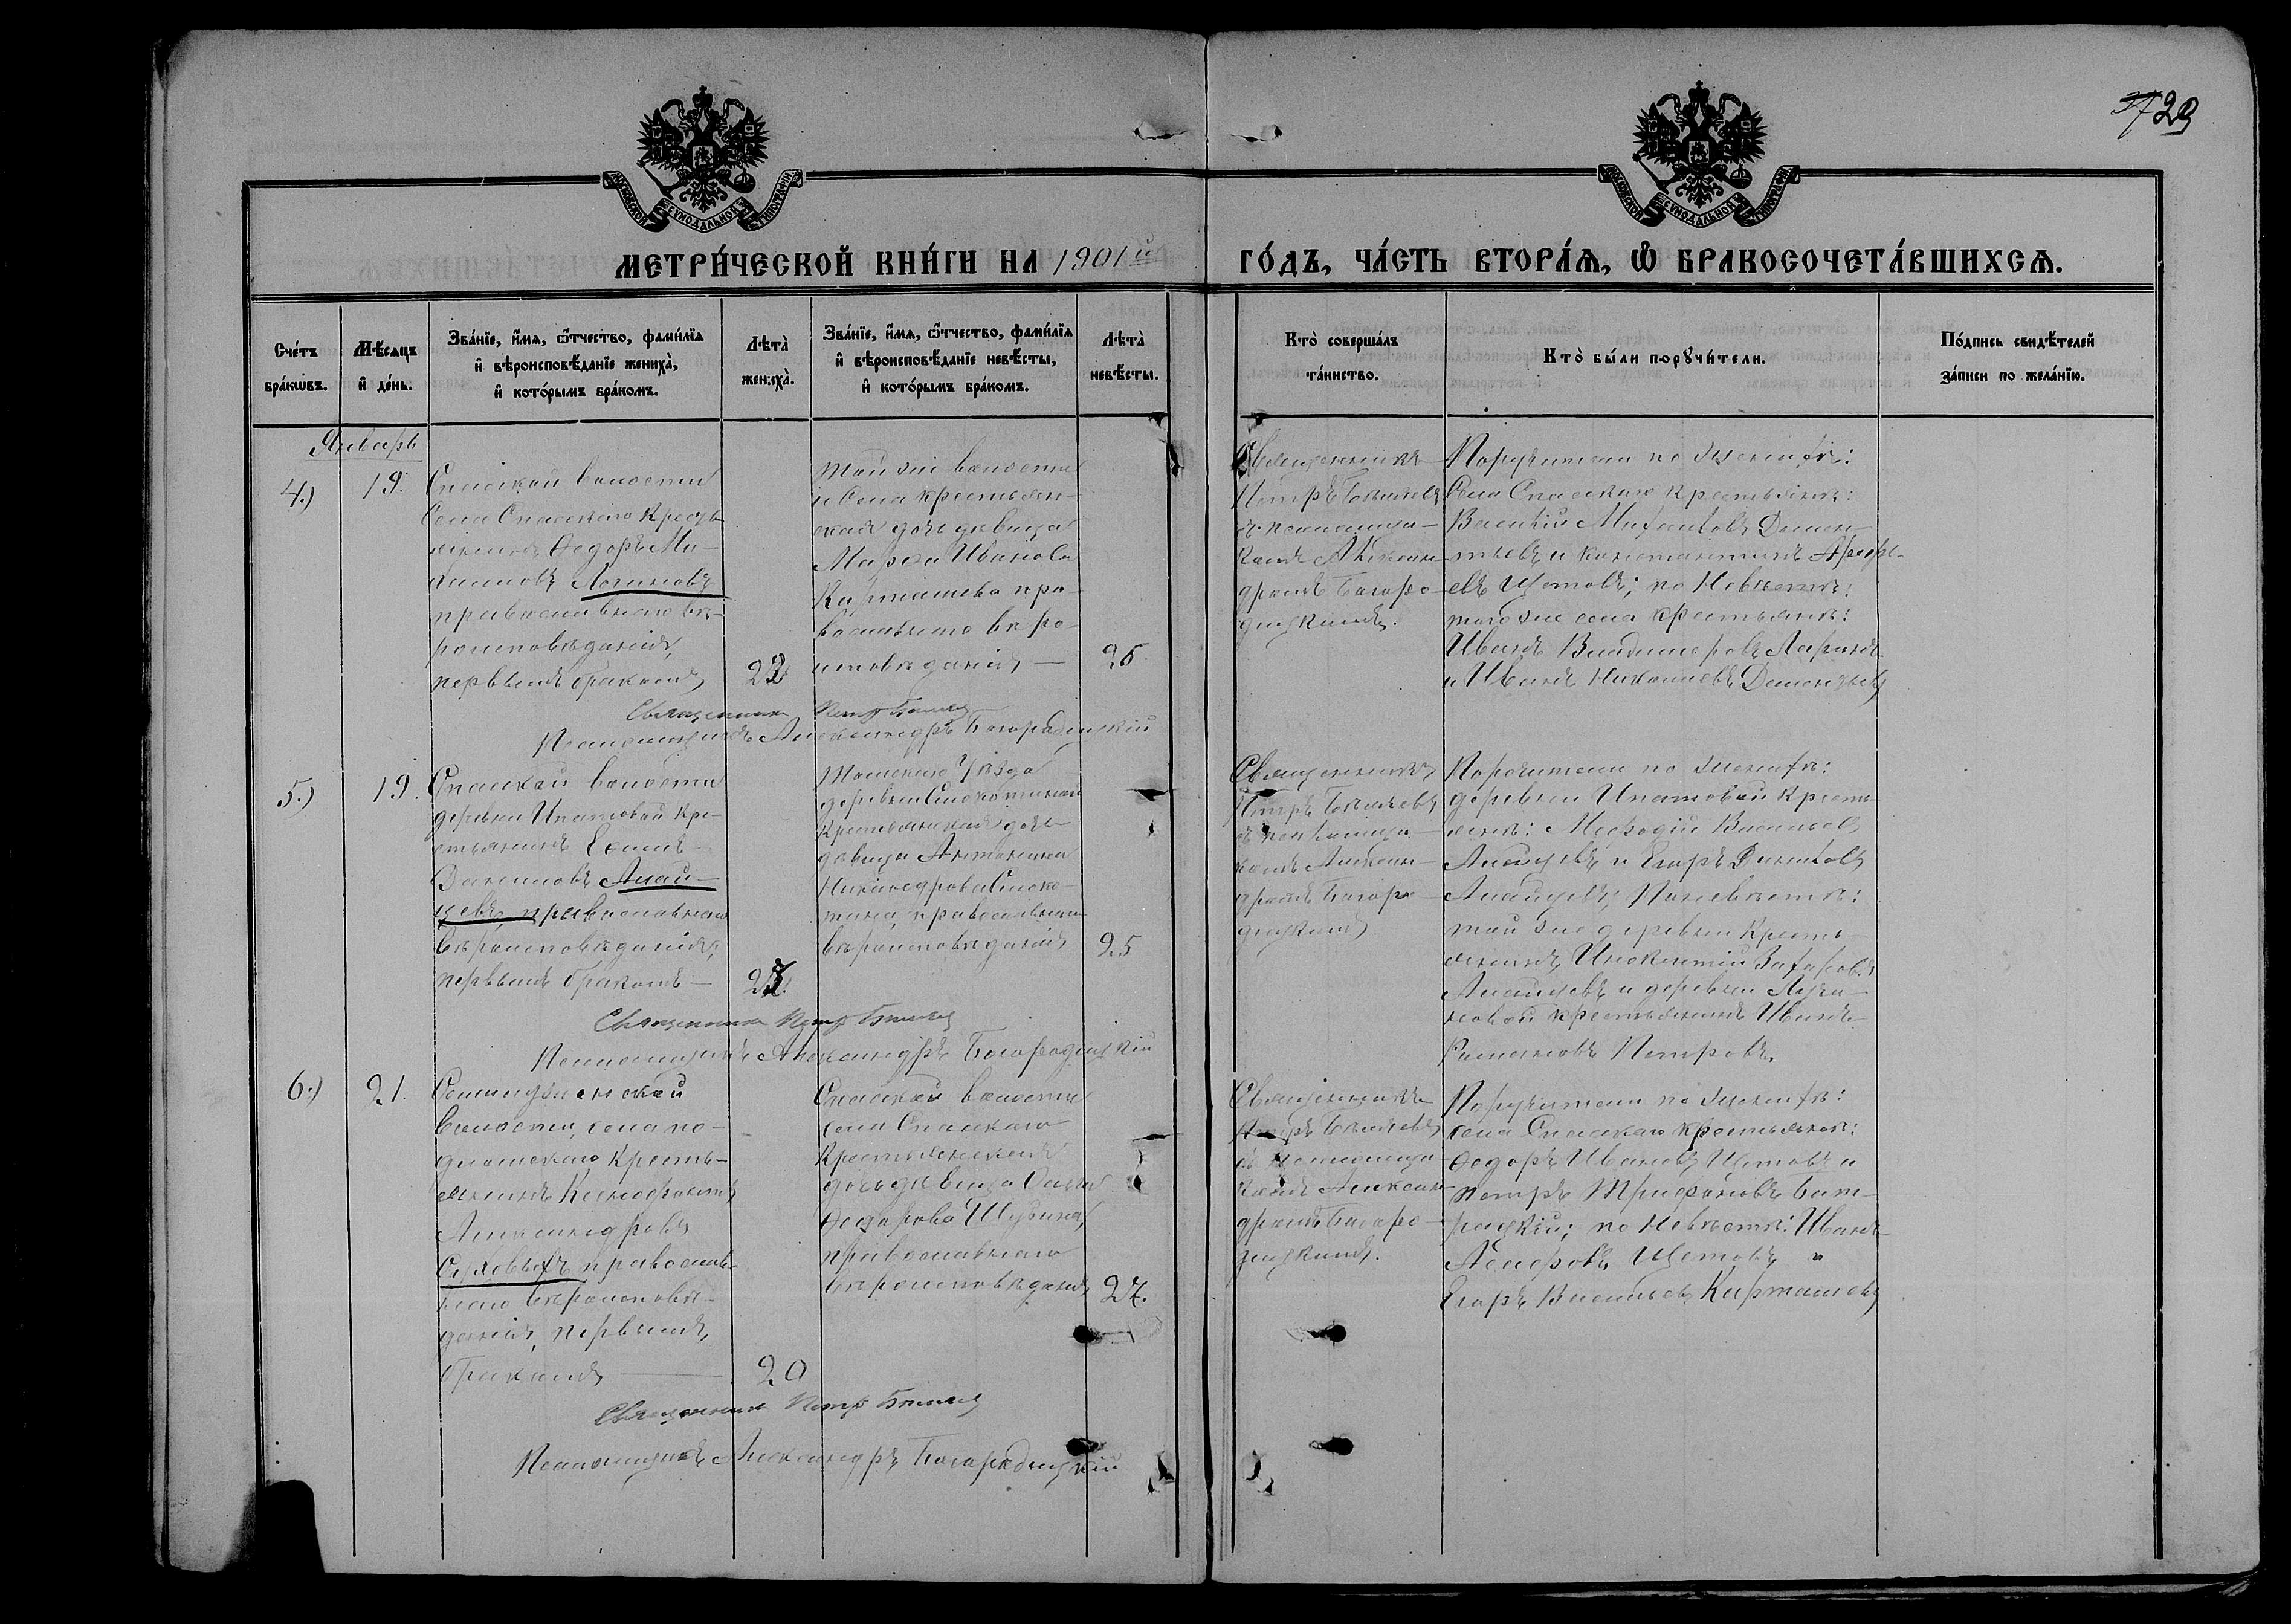 29
МОСКОВСКОЙ СѴНОДАЛЬНОЙ ТИПОГРАФІИ
МОСКОВСКОЙ СѴНОДАЛЬНОЙ ТИПОГРАФІИ
МЕТРИ́ЧЕСКОЙ КНИ́ГИ НА 1901й ГО́ДЪ, ЧА́СТЬ ВТОРА́Я, Ѿ БРАКОСОЧЕТА́ВШИХСЯ.
Сче́тъ бра́кѡвъ.
Мѣ́сяцъ и҆ де́нь.
Зва́нїе, и҆́мя, ѻ҆́тчество, фами́лїя
и҆ вѣроисповѣ́данїе жениха̀,
и҆ кото́рымъ бра́комъ.
Лѣта̀ жениха̀.
Зва́нїе, и҆́мя, ѻ҆́тчество, фами́лїя
и҆ вѣроисповѣ́данїе невѣ́сты,
и҆ кото́рымъ бра́комъ.
Лѣта̀ невѣ́сты.
Кто̀ соверша́лъ та́инство.
Кто̀ бы́ли порꙋчи́тели.
По́дпись свидѣ́телей за́писи по жела́нїю.
Январь
4.)
19.
Спаской волости
Села Спаскаго кресть-
янинъ Ѳедоръ Ми-
Логиновъ
православнаго вѣ-
роисповѣданія,
первымъ бракомъ
22
той же волости
и села крестьян-
ская дочь девица
Марѳа Иванова
Карташева пра-
вославнаго вѣро-
исповѣданія —
Священникъ
Петръ Бѣляевъ
съ псаломщи-
комъ Алексан-
дромъ Богоро-
дицкимъ.
Поручители по женихѣ:
Села Спаскаго крестьяне:
Василій Михаиловъ Демен-
тьевъ и Константинъ
Щетовъ; по Невѣстѣ:
того же села крестьяне:
Иванъ Владимеровъ Ларинъ
и Иванъ Николаевъ Дементьевъ
Священникъ Петръ Бѣляевъ
Псаломщикъ Александръ Богородицкій
5.)
19.
Спаской волости
деревни Ипатовой кре-
стьянинъ
православнаго
вѣроисповѣданія,
первымъ бракомъ —
Томскаго Уѣзда
деревни
крестьянская дочь
девица Антонина
Никандрова
православнаго
вѣроисповѣданія
25
Священникъ
Петръ Бѣляевъ
съ псаломщи-
комъ Алексан-
дромъ Богоро-
дицкимъ
Поручители по женихѣ:
деревни Ипатовой кресть-
яне: Меѳодій Васильевъ
и Егоръ
по невѣстѣ:
той же деревни кресть-
янинъ Инокентій Захаровъ
и деревни
крестьянинъ Иванъ
Романовъ Петровъ.
Священникъ Петръ Бѣляевъ
Псаломщикъ Александръ Богородицкій
6.)
21.
волости, села
кресть-
янинъ Ксенофонтъ
Александровъ
православ-
наго вѣроисповѣ-
данія, первымъ
бракомъ
20
Спаской волости
села Спаскаго
крестьянская
дочь девица
Ѳедорова Шубина,
православнаго
вѣроисповѣданія
Священникъ
Петръ Бѣляевъ
съ псаломщи-
комъ Алексан-
дромъ Богоро-
дицкимъ.
Поручители по женихѣ:
села Спаскаго крестьяне:
Ѳедоръ Ивановъ Щетовъ и
Петръ Трифоновъ
по Невѣстѣ: Иванъ
Щетовъ и
Егоръ Васильевъ Карташевъ
Священникъ Петръ Бѣляевъ
Псаломщикъ Александръ Богородицкій